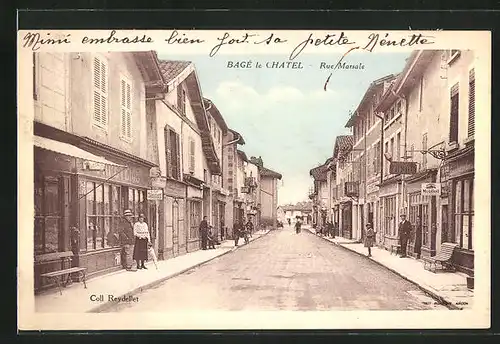 Mimi embrasse bien fort sa petite Nénette
BAGÉ le CHATEL - Rue Marsale
Coll Reydellet